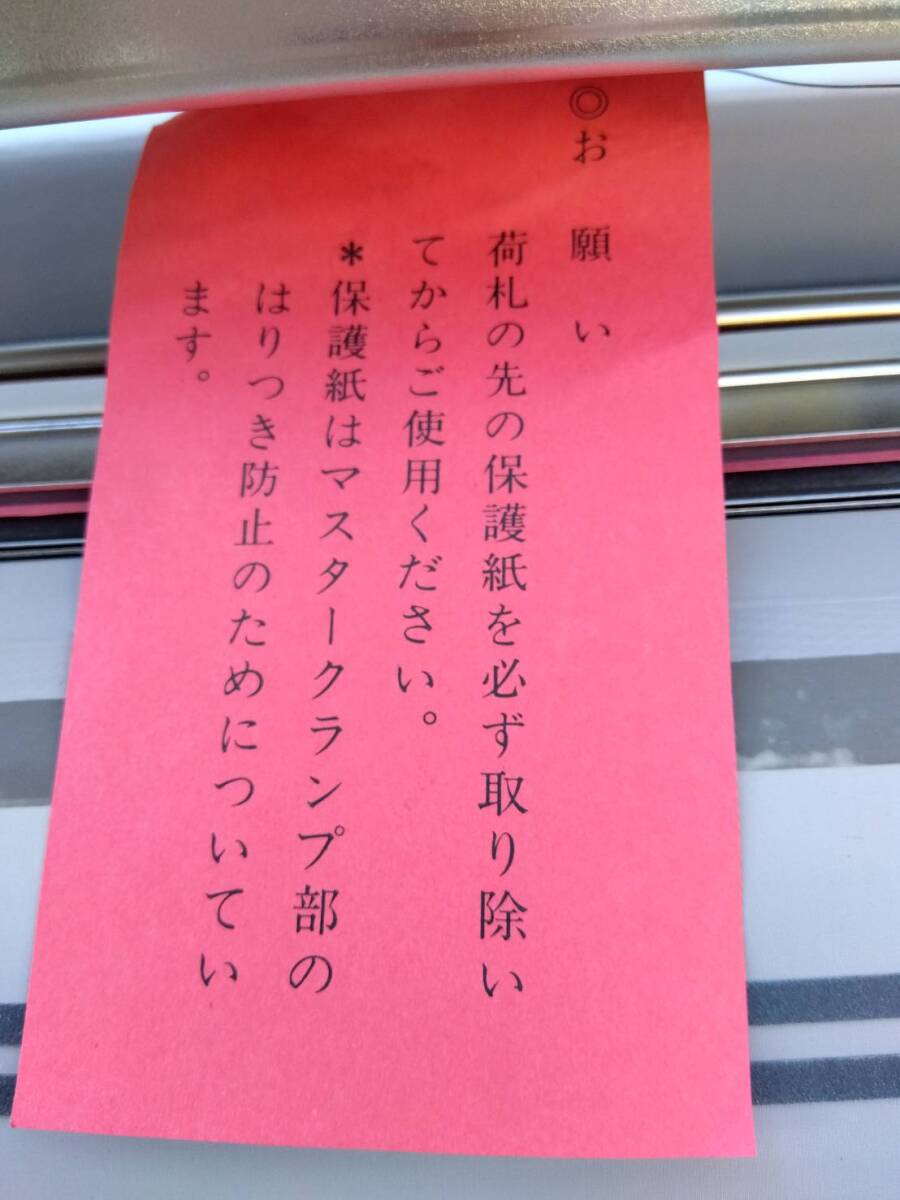 ◎お願い
荷札の先の保護紙を必ず取り除い
てからご使用ください。
＊保護紙はマスタークランプ部の
はりつき防止のためについてい
ます。